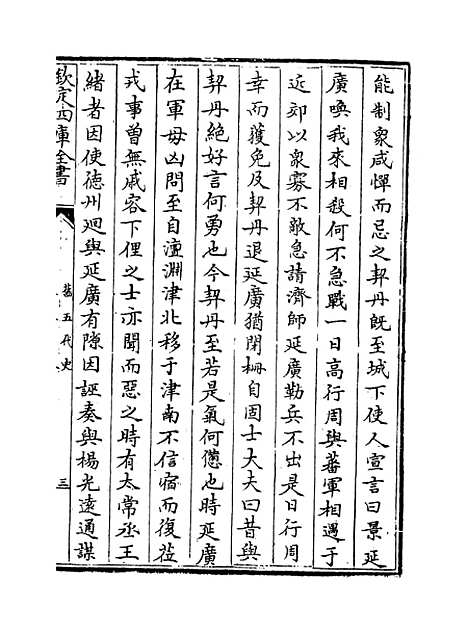 能制衆咸憚而忌之契丹既至城下使人宣言曰景延
廣喚我來相殺何不急戰一日高行周與蕃軍相遇于
近郊以衆寡不敵急請濟師延廣勒兵不出是日行周
幸而獲免及契丹退延廣猶閉柵自固士大夫曰昔與
契丹絶好言何勇也今契丹至若是氣何憊也時延廣
在軍母凶問至自澶淵津北移于津南不信宿而復莅
戎事曾無戚容下俚之士亦聞而惡之時有太常丞王
緒者因使德州廻與延廣有隙因誣奏與楊光遠通謀
欽定四庫全書
舊五代史
三